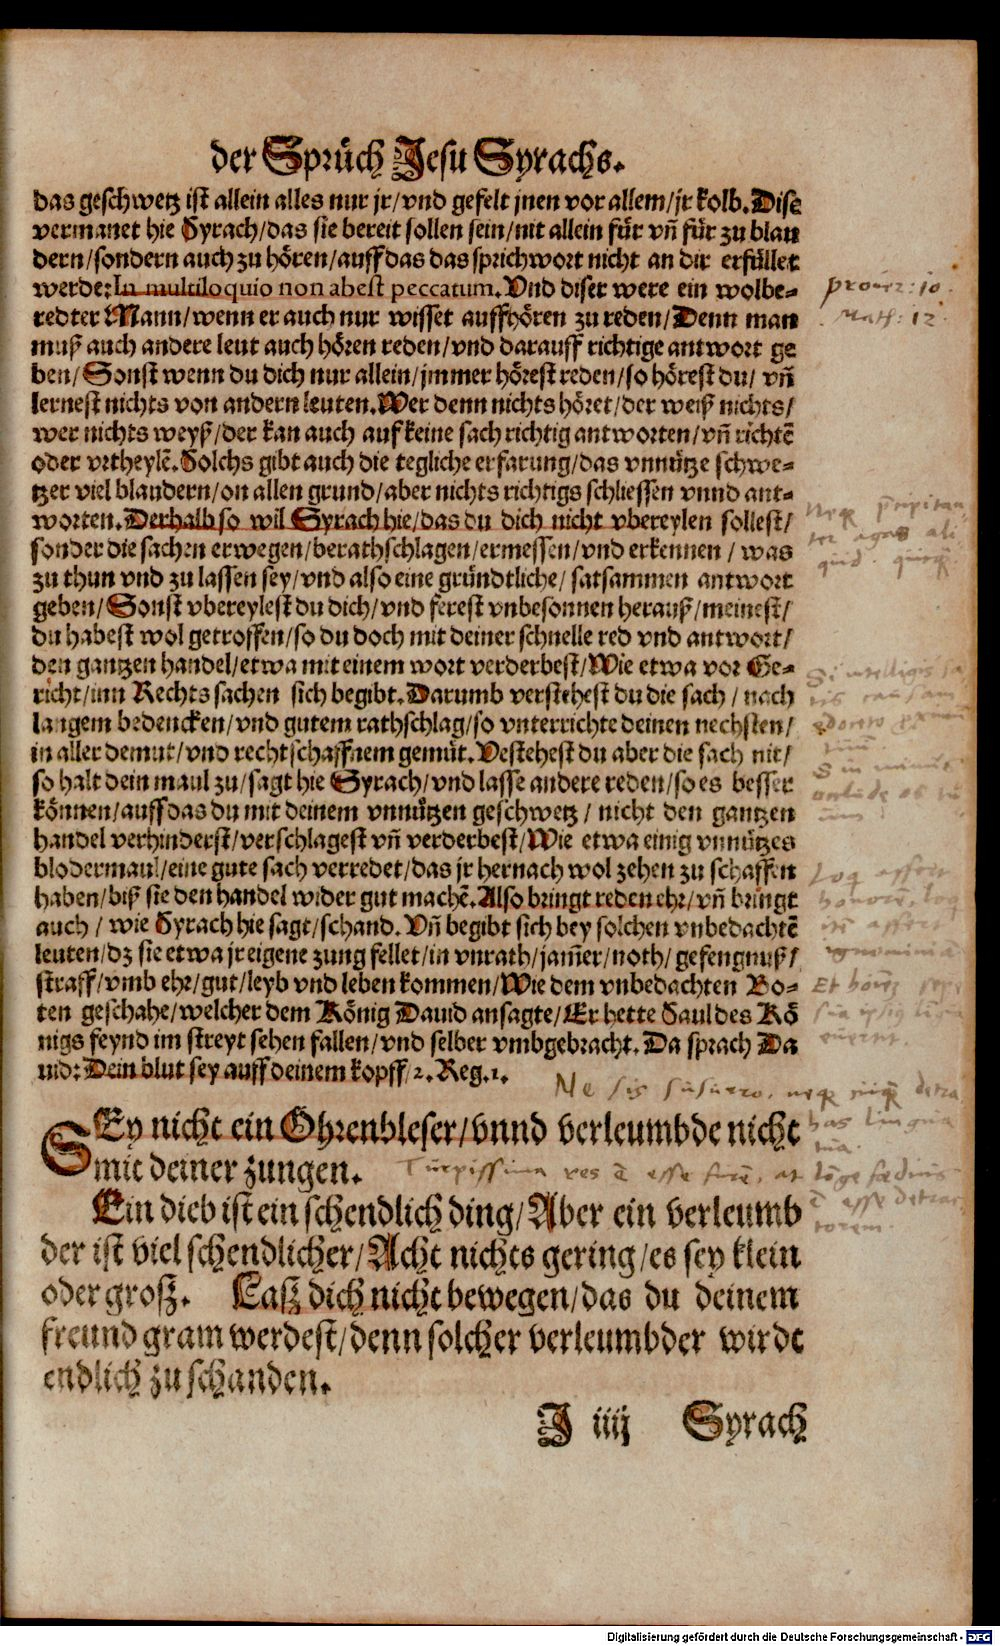 der Sprüch Jesu Syrachs.
das geschwetz ist allein alles nur jr/vnd gefelt jnen vor allem/jr kolb. Dise
vermanet hie Syrach/das sie bereit sollen sein/nit allein für vñ für zu blau
dern/sondern auch zu hören/auff das das sprichwort nicht an dir erfüllet
werde: In multiloquio non abest peccatum. Vnd diser were ein wolbe-
redter Mann/wenn er auch nur wisset auffhören zu reden/Denn man
muß auch andere leut auch hören reden/vnd darauff richtige antwort ge
ben/Sonst wenn du dich nur allein/jmmer hörest reden/so hörest du/vñ
lernest nichts von andern leuten. Wer denn nichts höret/der weiß nichts/
wer nichts weyß/der kan auch auf keine sach richtig antworten/vñ richtē
oder vrtheylē. Solchs gibt auch die tegliche erfarung/das vnnütze schwe-
tzer viel blaudern/on allen grund/aber nichts richtigs schliessen vnnd ant-
worten. Derhalb so wil Syrach hie/das du dich nicht vbereylen sollest/
sonder die sachen erwegen/berathschlagen/ermessen/vnd erkennen/was
zu thun vnd zu lassen sey/vnd also eine gründtliche/satsammen antwort
geben/Sonst vbereylest du dich/vnd ferest vnbesonnen herauß/meinest/
du habest wol getroffen/so du doch mit deiner schnelle red vnd antwort/
den gantzen handel/etwa mit einem wort verderbest/Wie etwa vor Ge-
richt/inn Rechts sachen sich begibt. Darumb verstehest du die sach/nach
langem bedencken/vnd gutem rathschlag/so vnterrichte deinen nechsten/
in aller demut/vnd rechtschaffnem gemüt. Vestehest du aber die sach nit/
so halt dein maul zu/sagt hie Syrach/vnd lasse andere reden/so es besser
können/auff das du mit deinem vnnützen geschwetz/nicht den gantzen
handel verhinderst/verschlagest vñ verderbest/Wie etwa einig vnnützes
blodermaul/eine gute sach verredet/das jr hernach wol zehen zu schaffen
haben/biß sie den handel wider gut machē. Also bringt reden ehr/vñ bringt
auch/wie Syrach hie sagt/schand. Vñ begibt sich bey solchen vnbedachtē
leuten/dz sie etwa jr eigene zung fellet/in vnrath/jam̃er/noth/gefengnuß/
straff/vmb ehr/gut/leyb vnd leben kommen/Wie dem vnbedachten Bo-
ten geschahe/welcher dem König Dauid ansagte/Er hette Saul des Kö
nigs feynd im streyt sehen fallen/vnd selber vmbgebracht. Da sprach Da
uid: Dein blut sey auff deinem kopff/2. Reg. 1.
SEy nicht ein Ohrenbleser/vnnd verleumbde nicht
mit deiner zungen.
Ein dieb ist ein schendlich ding/Aber ein verleumb
der ist viel schendlicher/Acht nichts gering/es sey klein
oder grosz. Lasz dich nicht bewegen/das du deinem
freund gram werdest/denn solcher verleumbder wirdt
endlich zu schanden.
J iiij Syrach
prouer: 10.
Math: 12.
Ne sis susurro, neq
lingua
tua
Turpissima res ē esse furē, at lōge fœdius
ē esse detrac
torem
Digitalisierung gefördert durch die Deutsche Forschungsgemeinschaft - DFG